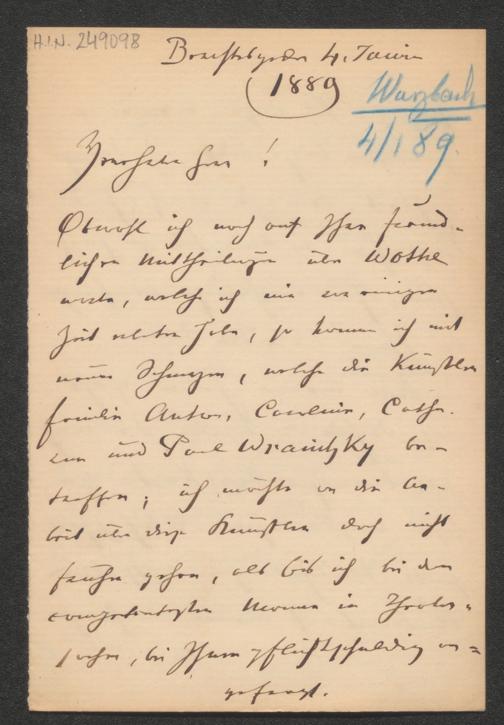 H.I.N. 249098
4. Jänner
1889
Wurzbach
4/1 89.
Verehrter Herr!
Obwohl ich noch auf Ihre freund-
lichen Mittheilungen über Wothe
warte, welche ich mir vor einigen
Zeit erbeten habe, so komme ich mit
neuen Schmerzen, welche die Künstler
familie Anton, Caroline, Catha-
rina und Paul Wranitzky be-
treffen; ich möchte an die Ar-
beit über diese Künstler doch nicht
früher gehen, als bis ich bei dem
competentesten Manne in
sachen, bei Ihnen pflichtschuldig an-
gefragt.